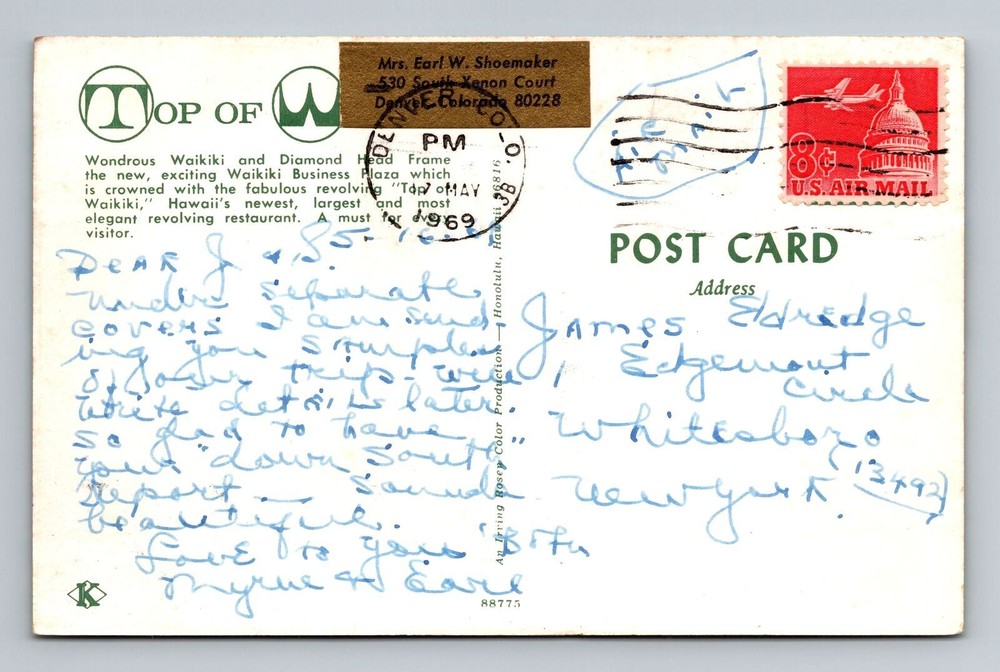 TOP OF W
Wondrous Waikiki and Diamond Head Frame
the new, exciting Waikiki Business Plaza which
is crowned with the fabulous revolving "Top of
Waikiki," Hawaii's newest, largest and most
elegant revolving restaurant. A must for every
visitor.
Mrs. Earl W. Shoemaker
530 South Xenon Court
Denver, Colorado 80228
DENVER, COLO.
PM
7 MAY
1969
3B
Air
Mail
8¢
U.S. AIR MAIL
POST CARD
Address
Dear J &
under separate
covers I am send
ing you samples
of our trip - will
write details later.
So glad to have
your "down South"
report — Sounds
beautiful.
Love to you Both
Myrne & Earl
James Eldredge
1 Edgemont
Circle
Whitesboro
New York (13492)
An Irving Rosen Color Production — Honolulu, Hawaii 96816
K
88775